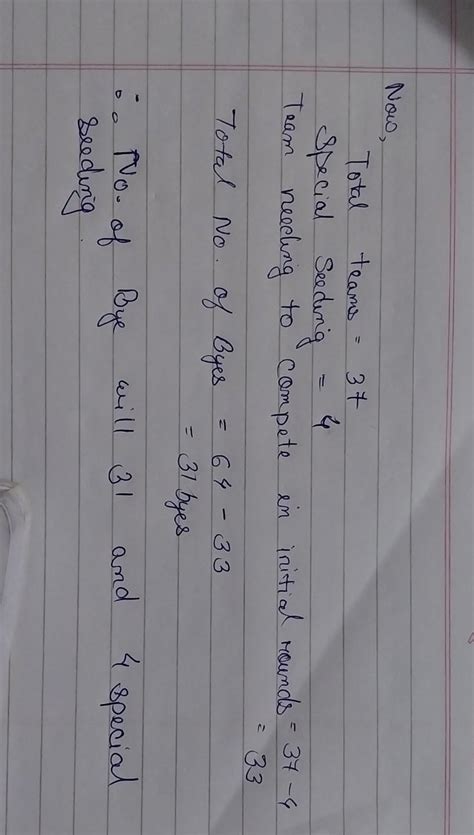 Now,
Total teams = 37
Special Seeding = 4
Team needing to compete in initial rounds = 37 - 4
= 33
Total No. of Byes = 64 - 33
= 31 byes
∴ No. of Bye will 31 and 4 special
seeding.